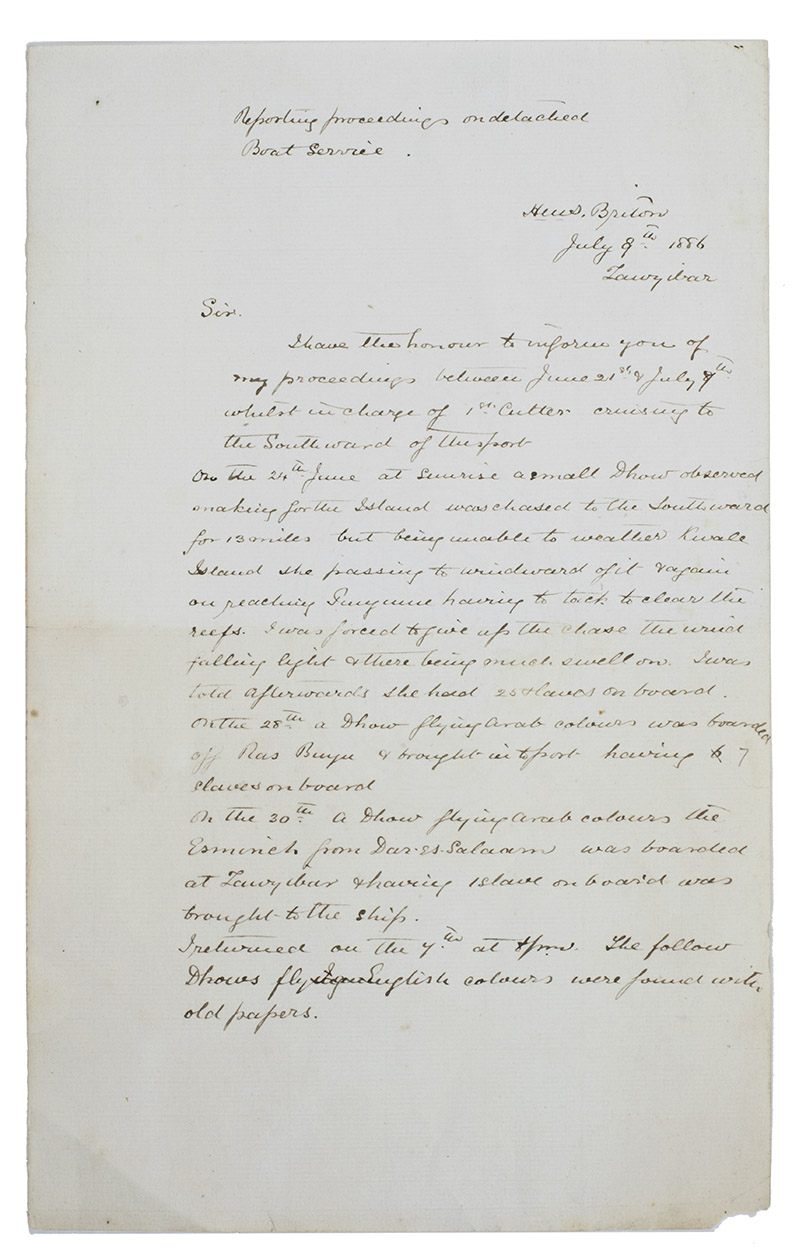 Reporting proceedings on detached
Boat Service .
H.M.S. Briton
July 9th 1886
Zanzibar
Sir.
I have the honour to inform you of
my proceedings between June 21st & July 7th
whilst in charge of 1st Cutter cruising to
the Southward of this port
On the 24th June at sunrise a small Dhow observed
making for the Island was chased to the Southward
for 13 miles but being unable to weather Kwale
Island she passing to windward of it & again
on reaching having to tack to clear the
reefs. I was forced to give up the chase the wind
falling light & there being much swell on. I was
told afterwards she had 25 slaves on board.
On the 28th a Dhow flying Arab colours was boarded
off Ras Buyu & brought in to port having 7
slaves on board
On the 30th a Dhow flying Arab colours the
from Dar-es-Salaam was boarded
at Zanzibar & having 1 slave on board was
brought to the ship.
I returned on the 7th at pm. The follow
Dhows flying English colours were found with
old papers.